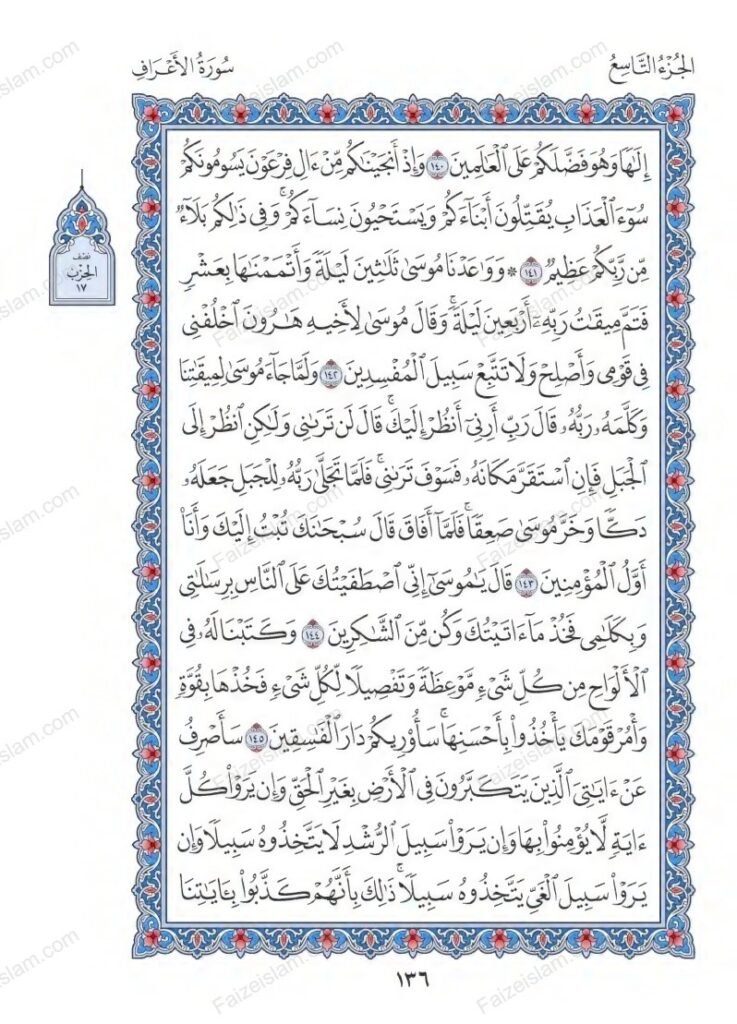 الجُزْءُ التَّاسِعُ
سُورَةُ الأَعْرَافِ
إِلَٰهًا وَهُوَ فَضَّلَكُمْ عَلَى ٱلْعَٰلَمِينَ ١٤٠ وَإِذْ أَنجَيْنَٰكُم مِّنْ ءَالِ فِرْعَوْنَ يَسُومُونَكُمْ
سُوٓءَ ٱلْعَذَابِ يُقَتِّلُونَ أَبْنَآءَكُمْ وَيَسْتَحْيُونَ نِسَآءَكُمْ ۚ وَفِى ذَٰلِكُم بَلَآءٌ
مِّن رَّبِّكُمْ عَظِيمٌ ١٤١ * وَوَٰعَدْنَا مُوسَىٰ ثَلَٰثِينَ لَيْلَةً وَأَتْمَمْنَٰهَا بِعَشْرٍ
فَتَمَّ مِيقَٰتُ رَبِّهِۦٓ أَرْبَعِينَ لَيْلَةً ۚ وَقَالَ مُوسَىٰ لِأَخِيهِ هَٰرُونَ ٱخْلُفْنِى
فِى قَوْمِى وَأَصْلِحْ وَلَا تَتَّبِعْ سَبِيلَ ٱلْمُفْسِدِينَ ١٤٢ وَلَمَّا جَآءَ مُوسَىٰ لِمِيقَٰتِنَا
وَكَلَّمَهُۥ رَبُّهُۥ قَالَ رَبِّ أَرِنِىٓ أَنظُرْ إِلَيْكَ ۚ قَالَ لَن تَرَىٰنِى وَلَٰكِنِ ٱنظُرْ إِلَى
ٱلْجَبَلِ فَإِنِ ٱسْتَقَرَّ مَكَانَهُۥ فَسَوْفَ تَرَىٰنِى ۚ فَلَمَّا تَجَلَّىٰ رَبُّهُۥ لِلْجَبَلِ جَعَلَهُۥ
دَكًّا وَخَرَّ مُوسَىٰ صَعِقًا ۚ فَلَمَّآ أَفَاقَ قَالَ سُبْحَٰنَكَ تُبْتُ إِلَيْكَ وَأَنَا۠
أَوَّلُ ٱلْمُؤْمِنِينَ ١٤٣ قَالَ يَٰمُوسَىٰٓ إِنِّى ٱصْطَفَيْتُكَ عَلَى ٱلنَّاسِ بِرِسَٰلَٰتِى
وَبِكَلَٰمِى فَخُذْ مَآ ءَاتَيْتُكَ وَكُن مِّنَ ٱلشَّٰكِرِينَ ١٤٤ وَكَتَبْنَا لَهُۥ فِى
ٱلْأَلْوَاحِ مِن كُلِّ شَىْءٍ مَّوْعِظَةً وَتَفْصِيلًا لِّكُلِّ شَىْءٍ فَخُذْهَا بِقُوَّةٍ
وَأْمُرْ قَوْمَكَ يَأْخُذُوا۟ بِأَحْسَنِهَا ۚ سَأُو۟رِيكُمْ دَارَ ٱلْفَٰسِقِينَ ١٤٥ سَأَصْرِفُ
عَنْ ءَايَٰتِىَ ٱلَّذِينَ يَتَكَبَّرُونَ فِى ٱلْأَرْضِ بِغَيْرِ ٱلْحَقِّ وَإِن يَرَوْا۟ كُلَّ
ءَايَةٍ لَّا يُؤْمِنُوا۟ بِهَا وَإِن يَرَوْا۟ سَبِيلَ ٱلرُّشْدِ لَا يَتَّخِذُوهُ سَبِيلًا وَإِن
يَرَوْا۟ سَبِيلَ ٱلْغَىِّ يَتَّخِذُوهُ سَبِيلًا ۚ ذَٰلِكَ بِأَنَّهُمْ كَذَّبُوا۟ بِـَٔايَٰتِنَا
نِصْفُ
الحِزْبِ
١٧
١٣٦
Faizeislam.com